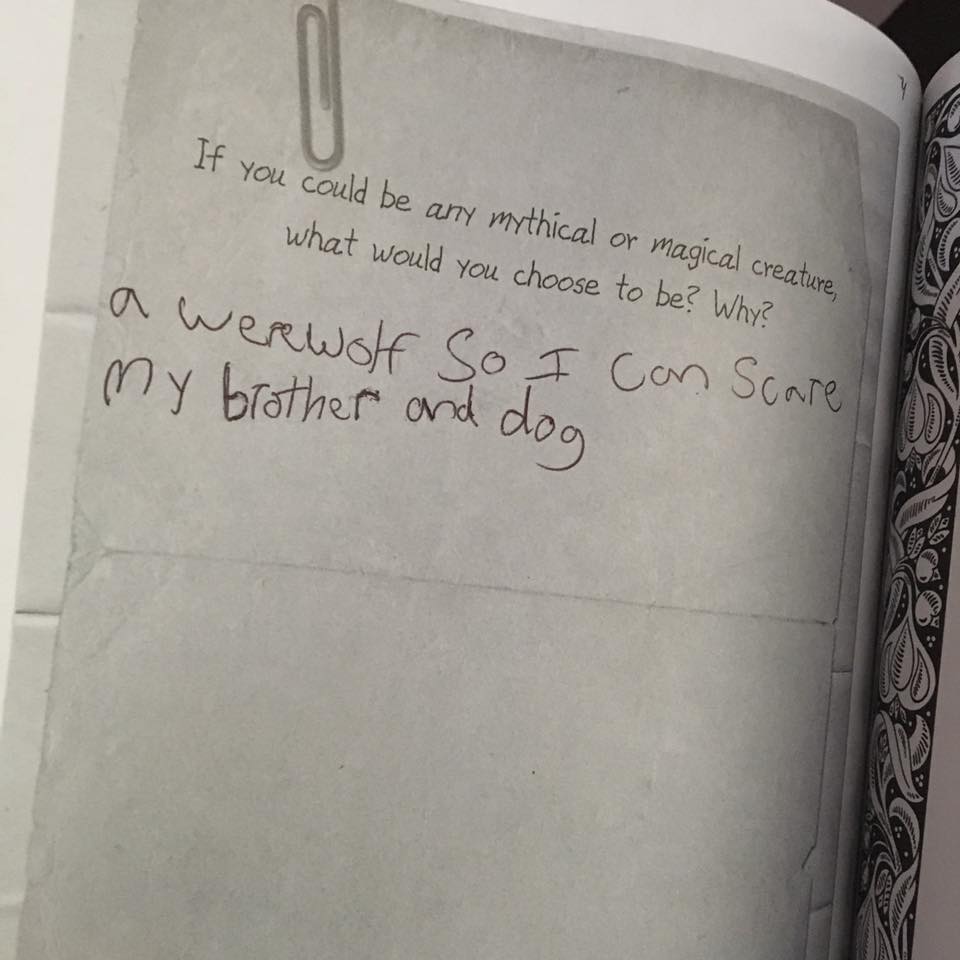 If you could be any mythical or magical creature,
what would you choose to be? Why?
a werewolf So I Can Scare
My brother and dog